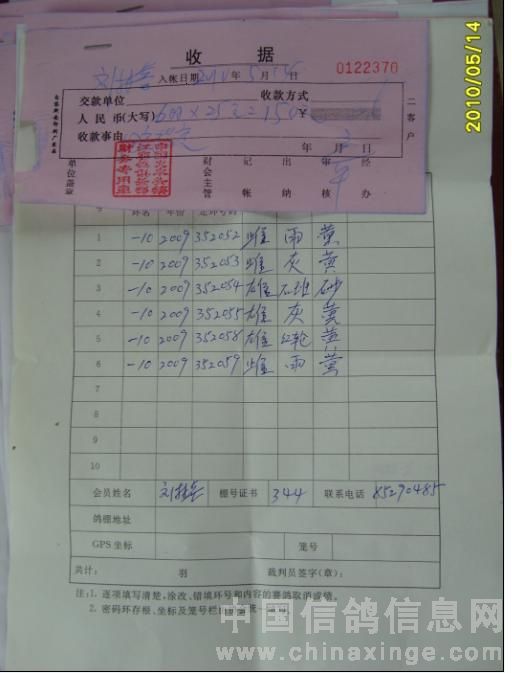 2010/05/14
收 据
0122370
入帐日期 2010 年 5 月 日
交款单位 收款方式
人民币(大写) 6羽×25元=150 ¥
收款事由 年 月 日
二客户
单位盖章 财会主管 记帐 出纳 审核 经办
财务专用章
环名 年份 足环号码
1 -10 2009 352052 雌 雨 黄
2 -10 2009 352053 雌 灰 黄
3 -10 2009 352054 雄 石斑 砂
4 -10 2009 352055 雄 灰 黄
5 -10 2009 352058 雄 红轮 黄
6 -10 2009 352059 雌 雨 黄
7
8
9
10
会员姓名 棚号证书 344 联系电话 85290485
鸽棚地址
GPS坐标 笼号
共计: 羽 裁判员签字(章):
注:1. 逐项填写清楚,涂改、错填环号和内容的赛鸽取消成绩。
2. 密码环存根、坐标及笼号栏
中国信鸽信息网
www.chinaxinge.com